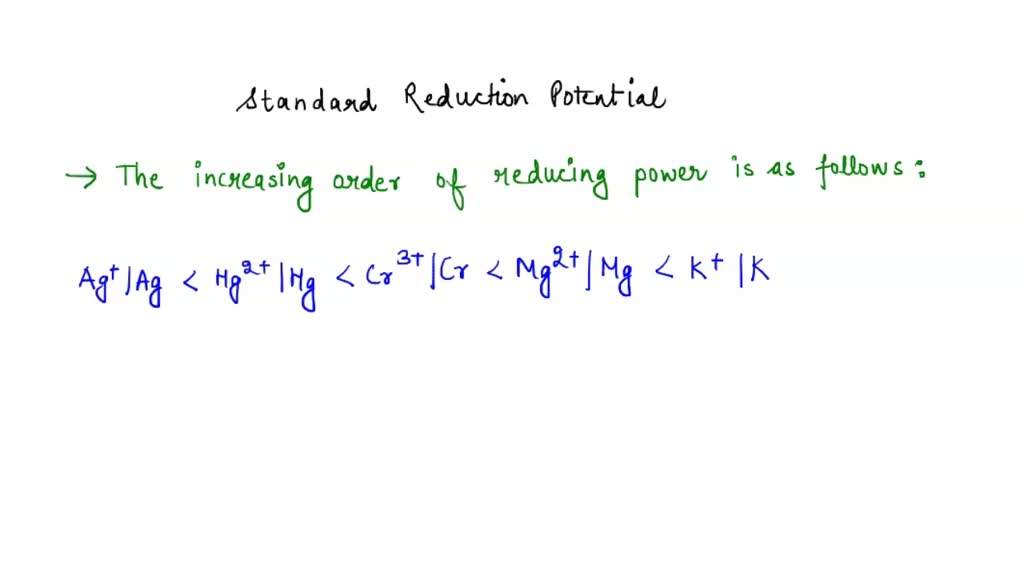 Standard Reduction Potential
→ The increasing order of reducing power is as follows:
Ag⁺|Ag < Hg²⁺|Hg < Cr³⁺|Cr < Mg²⁺|Mg < K⁺|K